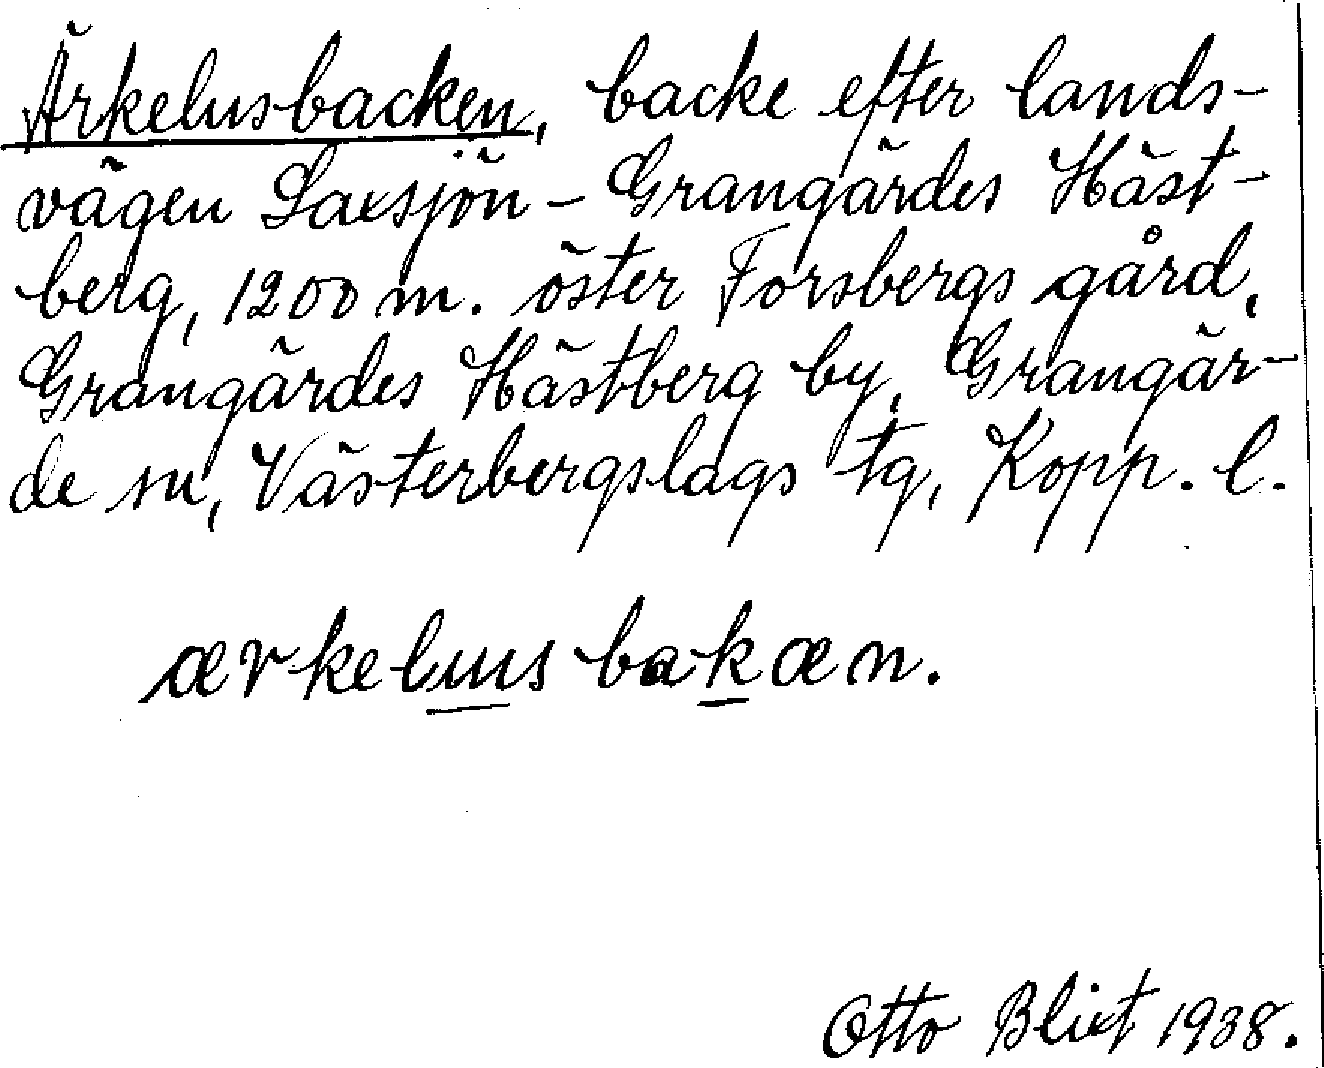 Ärkelusbacken, backe efter lands-
vägen Laxsjön - Grangärdes Häst-
berg, 1200 m. öster Forsbergs gård,
Grangärdes Hästberg by, Grangär-
de sn, Västerbergslags tg, Kopp. l.
ærkelus bakæn.
Otto Blixt 1938.